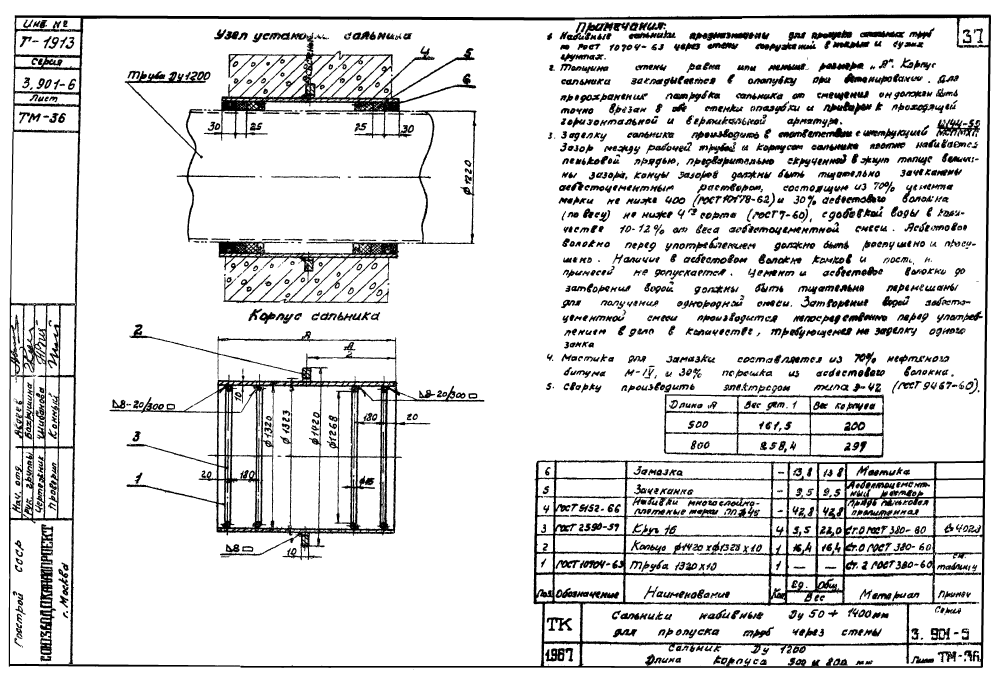 ИНВ №
Т-1913
серия
3.901-6
Лист
ТМ-36
Узел установки сальника
4
5
6
Труба Ду1200
30
25
25
30
ф1220
Корпус сальника
А
А/2
2
3
1
10
ф1320
ф1323
ф1420
ф1268
180
20
20
180
ф16
10
Примечания:
37
1. Набивные сальники предназначены для пропуска стальных труб
по ГОСТ 10704-63 через стены сооружений в мокрых и сухих
грунтах.
2. Толщина стены равна или меньше размера „А". Корпус
сальника закладывается в опалубку при бетонировании. Для
предохранения патрубка сальника от смещения он должен быть
точно врезан в обе стенки опалубки и приварен к проходящей
горизонтальной и вертикальной арматуре.
3. Заделку сальника производить в соответствии с инструкцией
Зазор между рабочей трубой и корпусом сальника плотно набивается
пеньковой прядью, предварительно скрученной в жгут толще величи-
ны зазора, концы зазоров должны быть тщательно зачеканены
асбестоцементным раствором, состоящим из 70% цемента
марки не ниже 400 (ГОСТ 10178-62) и 30% асбестового волокна
(по весу) не ниже 4го сорта (ГОСТ 7-60), с добавкой воды в коли-
честве 10-12% от веса асбестоцементной смеси. Асбестовое
волокно перед употреблением должно быть распушено и просу-
шено. Наличие в асбестовом волокне комков и пост. н.
примесей не допускается. Цемент и асбестовое волокно до
затворения водой должны быть тщательно перемешаны
для получения однородной смеси. Затворение водой асбесто-
цементной смеси производится непосредственно перед употреб-
лением в дело в количестве, требующемся на заделку одного
замка
4. Мастика для замазки составляется из 70% нефтяного
битума М-IV и 30% порошка из асбестового волокна.
5. Сварку производить электродом типа Э-42 (ГОСТ 9467-60).
Длина А Вес дет. 1 Вес корпуса
500 161,5 200
800 258,4 297
6 Замазка - 13,8 13,8 Мастика
5 Зачеканка - 9,5 9,5 Асбестоцемент-
ный раствор
4 ГОСТ 5152-66 Набивки многослойно-
плетеные марки - 42,8 42,8 Прядь пеньковая
пропитанная
3 ГОСТ 2590-57 Круг 16 4 5,5 22,0 Ст.0 ГОСТ 380-60
2 Кольцо ф1420хф1323х10 1 16,4 16,4 Ст.0 ГОСТ 380-60
1 ГОСТ 10704-63 Труба 1320х10 1 — — Ст. 2 ГОСТ 380-60 см. таблицу
Поз. Обозначение Наименование Кол. Ед. Общ. Вес Материал Примеч
ТК
1967
Сальники набивные Ду 50 ÷ 1400мм
для пропуска труб через стены
Сальник Ду 1200
Длина корпуса 500 и 800 мм
Серия
3.901-5
Лист ТМ-36
Нач. отд.
Рук. группы
Чертежник
Проверил
Вахрушина
Шибанова
Конный
Госстрой СССР
СОЮЗВОДОКАНАЛПРОЕКТ
г. Москва